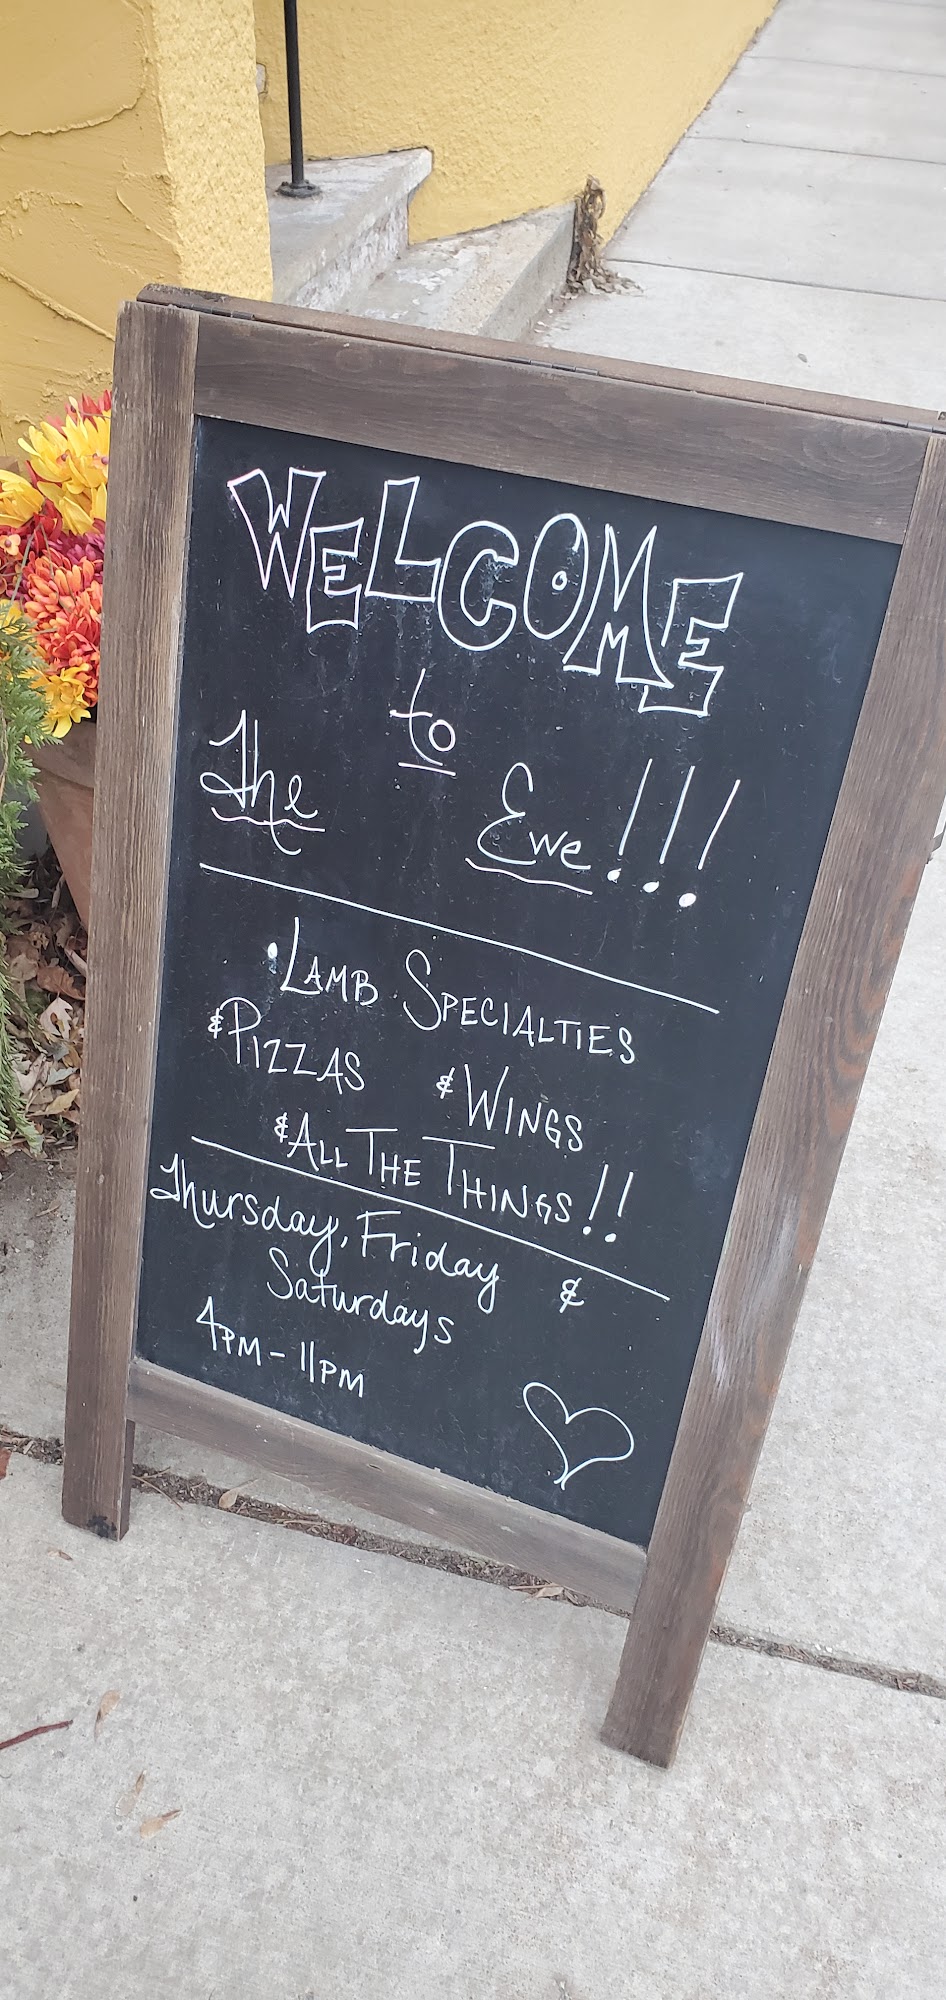 WELCOME
to
The Ewe!!!
• LAMB SPECIALTIES
& PIZZAS & WINGS
& ALL THE THINGS!!
Thursday, Friday &
Saturdays
4PM - 11PM